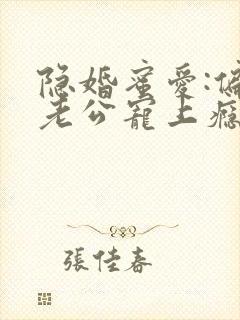 隐婚蜜爱:偏
老公宠上瘾
張佳春